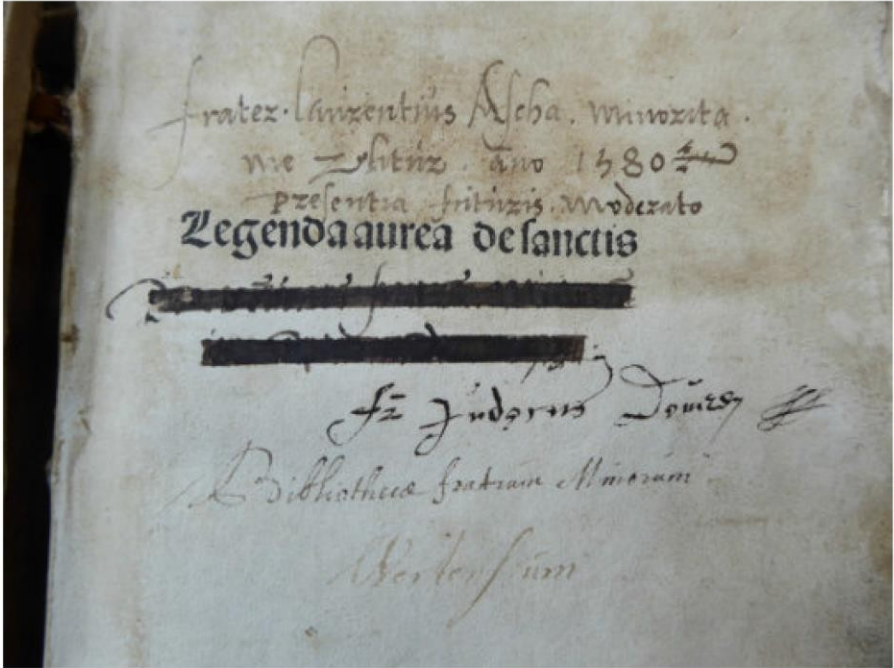 frater. laurentius Ascha. minorita.
me utitur. año 1580
presentia futuris. moderato
Legenda aurea de sanctis
fr Judocus
Bibliothecæ fratrum Minorum
Wertensium